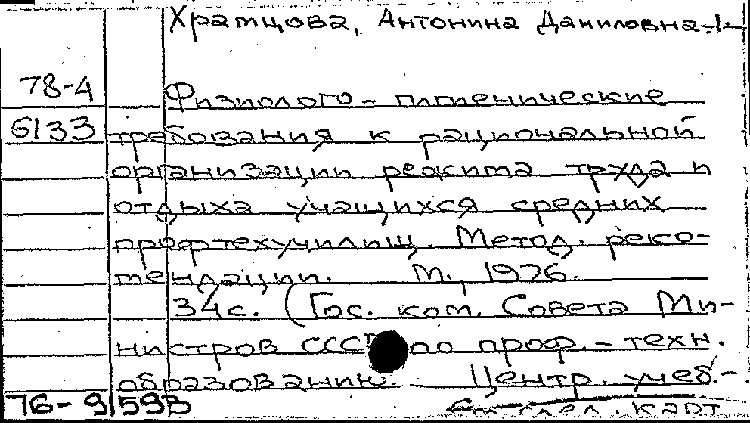 Храмцова, Антонина Даниловна -1-
78-4
Физиолого-гигиенические
6133
требования к рациональной
организации режима труда и
отдыха учащихся средних
профтехучилищ. Метод. реко-
мендации. М., 1976.
34с. (Гос. ком. Совета Ми-
нистров СССР по проф.-техн.
образованию. Центр. учеб.-
76-91593
См. след. карт.